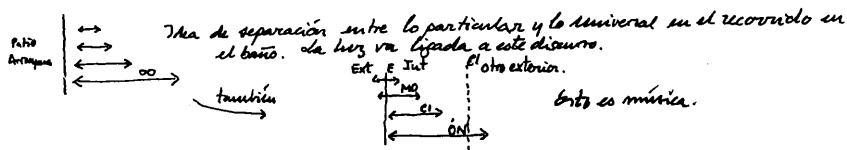 Idea de separación entre lo particular y lo universal en el recorrido en
el baño. La luz va ligada a este discurso.
Patio
Arrayanes
∞
también
Ext E Int
El otro exterior.
MO
CI
ÓN
Esto es música.